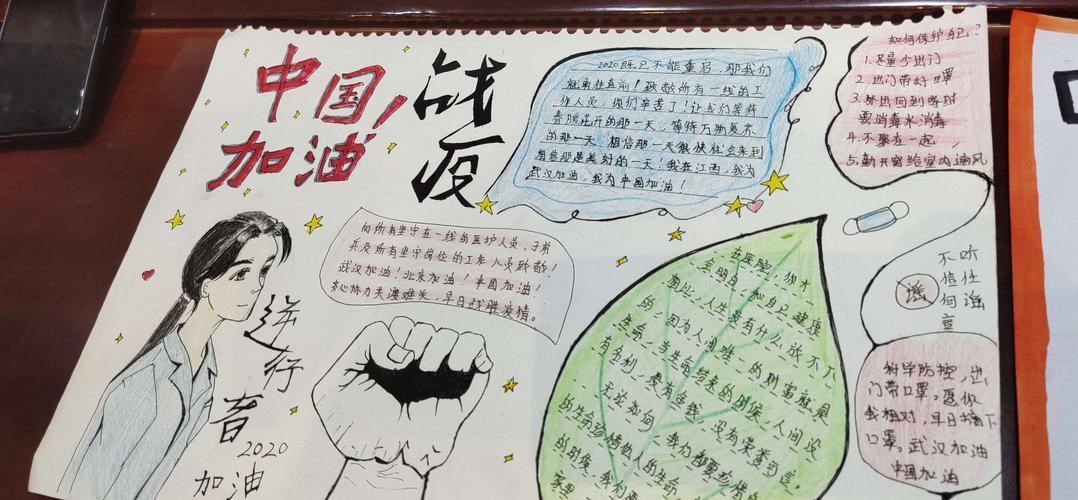 中国
加油
战
疫
2020既已不能重启，那我们
就勇往直前！致敬所有一线的工
作人员，你们辛苦了！让我们等待
春暖花开的那一天，等待万物复苏
的那一天，相信那一天很快就会来到
相信那是美好的一天！我在江西，我为
武汉加油，我为中国加油！
如何保护自己？
1.尽量少出门
2.出门带好口罩
3.外出回到家时
要消毒水消毒
4.不聚在一起，
5.勤开窗给室内通风
向所有坚守在一线的医护人员，子弟
兵及所有坚守岗位的工作人员致敬！
武汉加油！北京加油！中国加油！
齐心协力共渡难关，早日战胜疫情。
逆
行
者
2020
加油
在医院，你才
会明白，和自己健康
相比，人生没有什么放不下
的，因为人间难
生命，当生命结束的时候，人间没
有名利，没有金钱，没有荣誉可言。
无论如何，我们都要珍惜自
的生命珍惜他人的生命
的时候，我们
不听
信任
何谣
言
谣
科学防控，出
门带口罩。愿你
我相对，早日摘下
口罩。武汉加油
中国加油